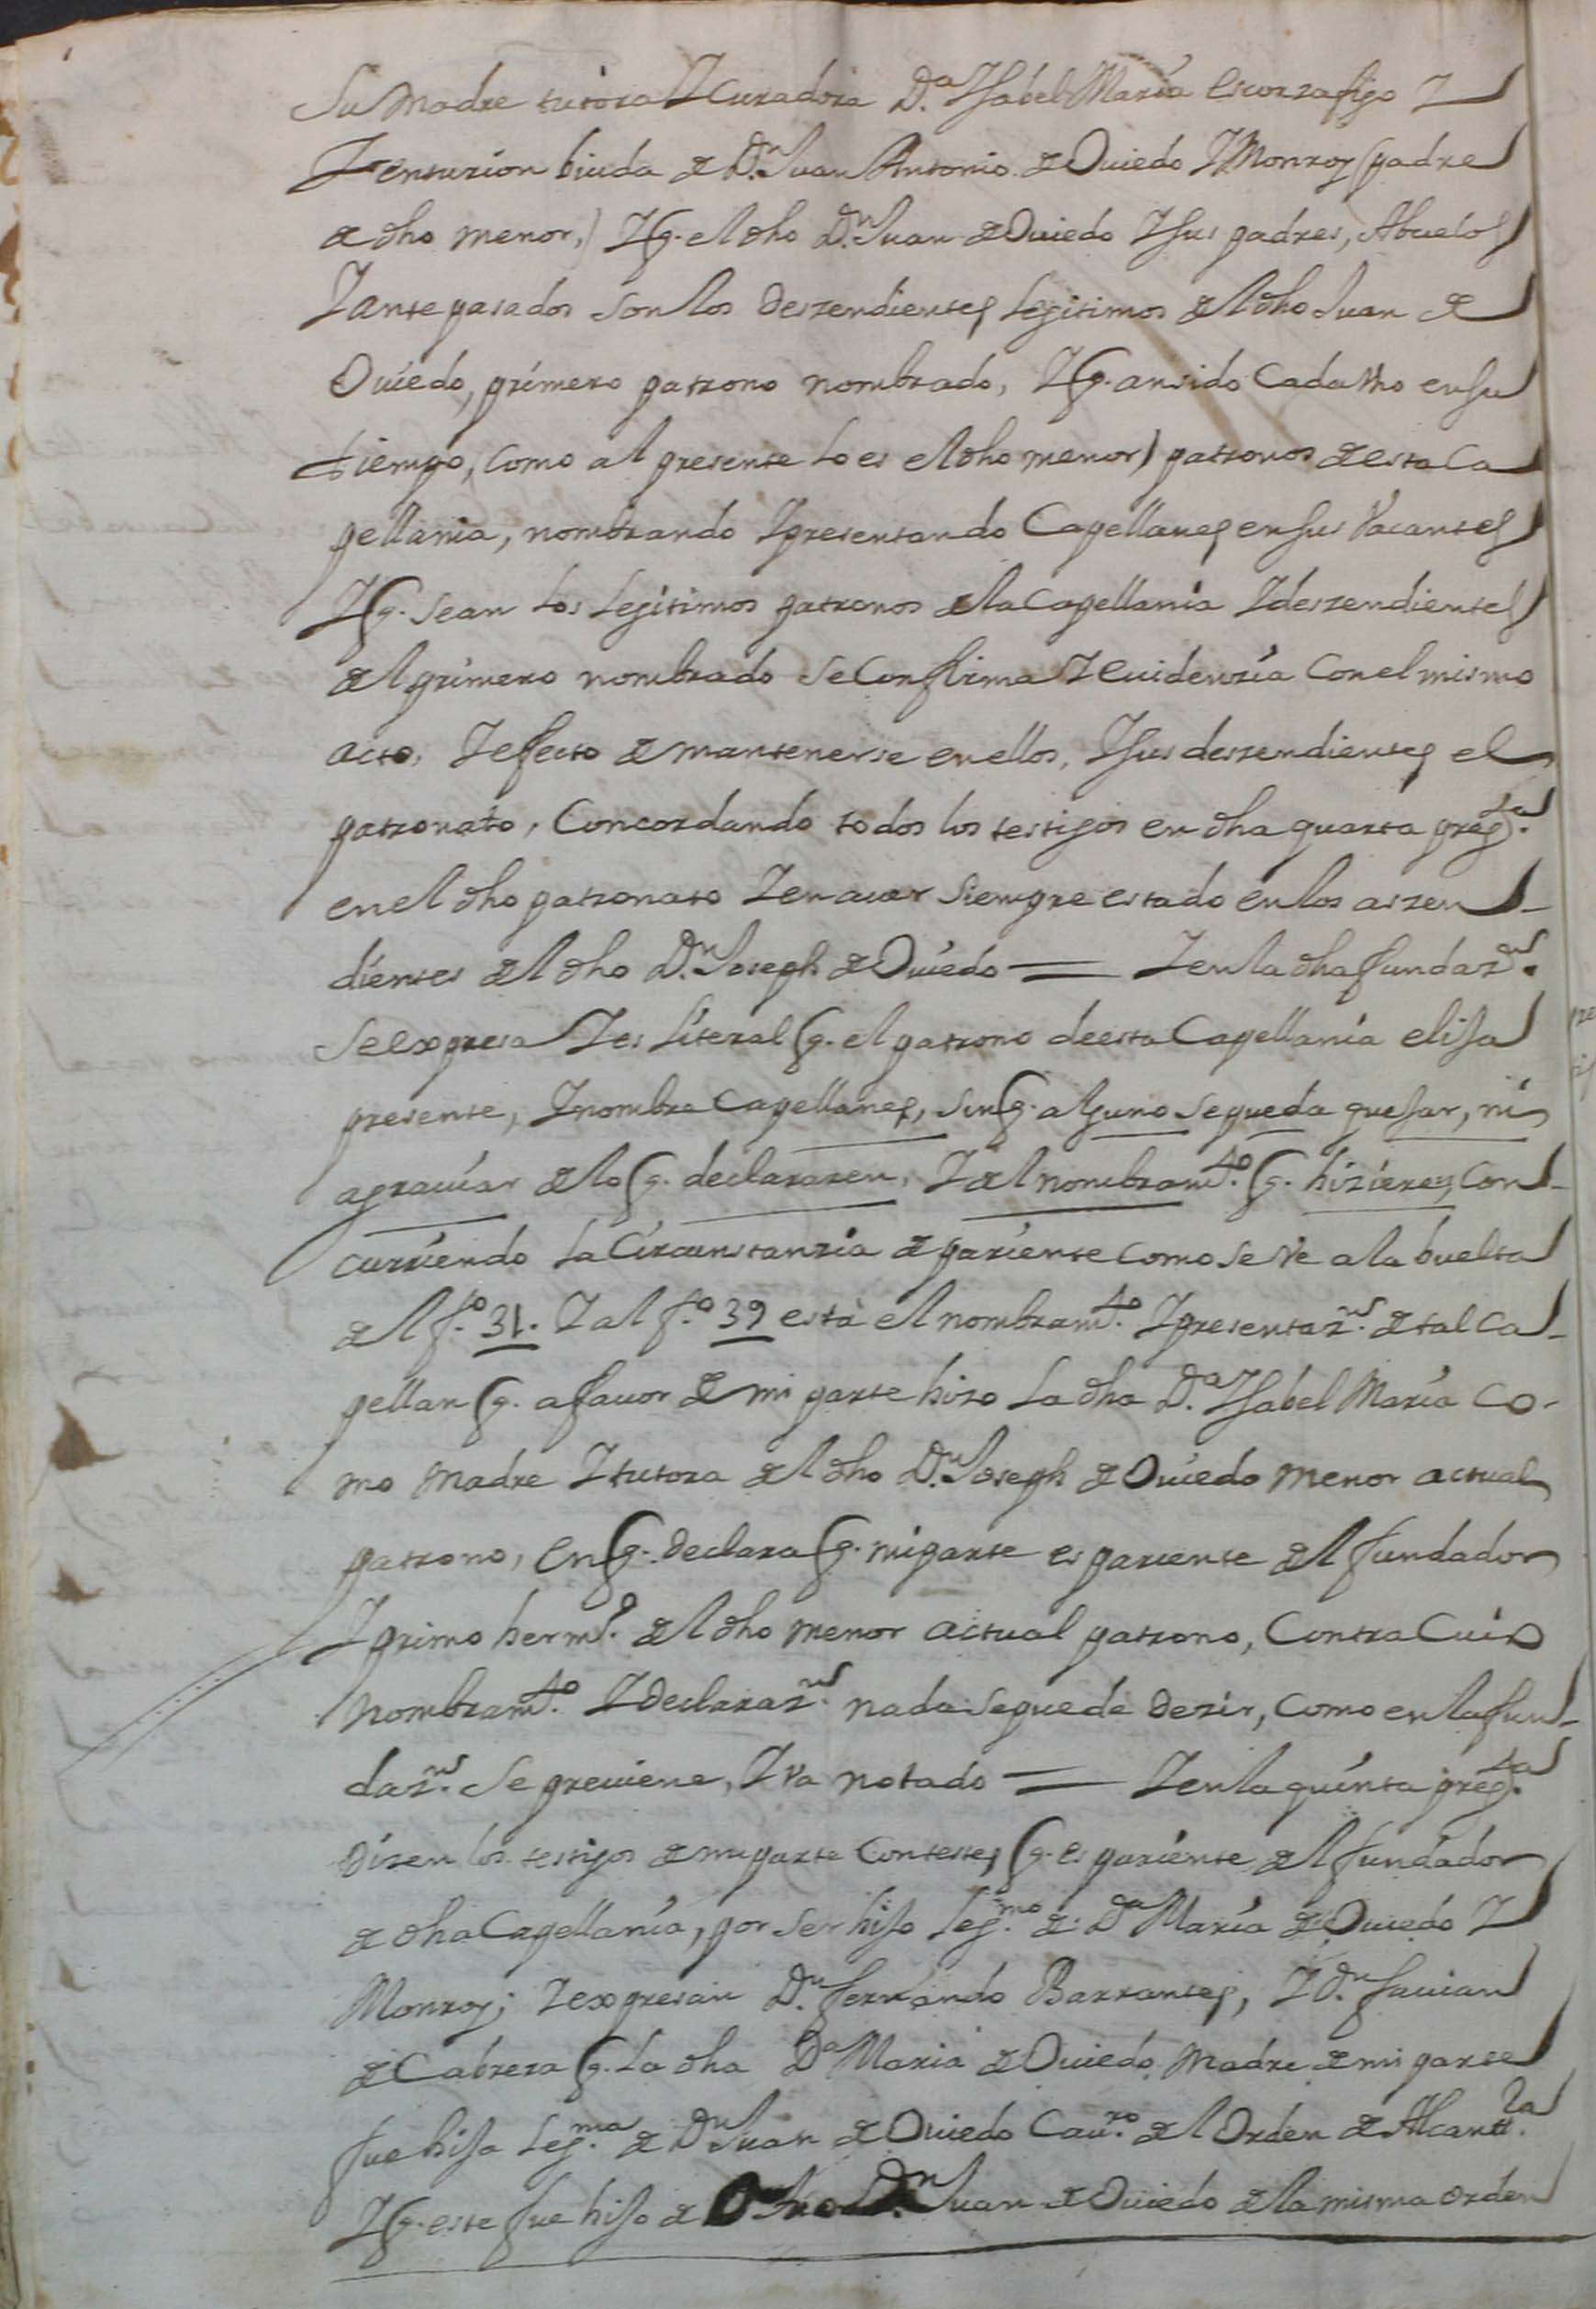 Su Madre tutora Y Curadora D.ª Ysabel María Escorzafigo Y
Zenturion biuda de D.n Juan Antonio de Ouiedo Y Monroy (padre
de dho menor,) Y q. el dho D.n Juan de Ouiedo Y sus padres, Abuelos
Y antepasados son los deszendientes legitimos de el dho Juan de
Ouiedo, primero patrono nombrado, Y q. an sido Cada Vno en su
tiempo, (como al presente lo es el dho menor) patronos de esta Ca
pellania, nombrando Y presentando Capellanes en sus Vacantes
Y q. sean los Legitimos patronos de la Capellania Y deszendientes
de el primero nombrado se Confirma Y Euidenzía Con el mismo
acto, Y efecto de mantenerse en ellos, Y sus deszendientes el
patronato, Concordando todos los testigos en dha quarta preg.ta
en el dho patronato Y en auer siempre estado en los aszen-
dientes de el dho D.n Joseph de Ouiedo = Y en la dha fundaz.n
se expresa Y es Literal q. el patrono de esta Capellanía elija
presente, Y nombre Capellanes, sin q. alguno se pueda quejar, ni
agrauiar de lo q. declararen, Y de el nombram.to q. hizieren, Con-
curriendo la Circunstanzia de pariente como se ve a la buelta
de el f.º 31. Y al f.º 39 está el nombram.to Y presentaz.n de tal Ca-
pellan q. a fauor de mi parte hizo la dha D.ª Ysabel María Co-
mo Madre Y tutora de el dho D.n Joseph de Ouiedo menor actual
patrono, en q. declara q. mi parte es pariente de el fundador
Y primo herm.º de el dho menor actual patrono, Contra Cuio
Nombram.to Y declaraz.n nada se puede dezir, como en la fun-
daz.n se preuiene, Y va notado = Y en la quinta preg.ta
dizen los testigos de mi parte Contestes q. es pariente de el fundador
de dha Capellanía, por ser hijo Leg.mo de D.ª María de Ouiedo Y
Monroy; Y expresan D.n fernando Barrantes, Y D.n fauian
de Cabrera q. la dha D.ª Maria de Ouiedo Madre de mi parte
fue hija Leg.ma de D.n Juan de Ouiedo Cau.ro de el Orden de Alcant.ra
Y q. este fue hijo de D.n Juan de Ouiedo de la misma orden